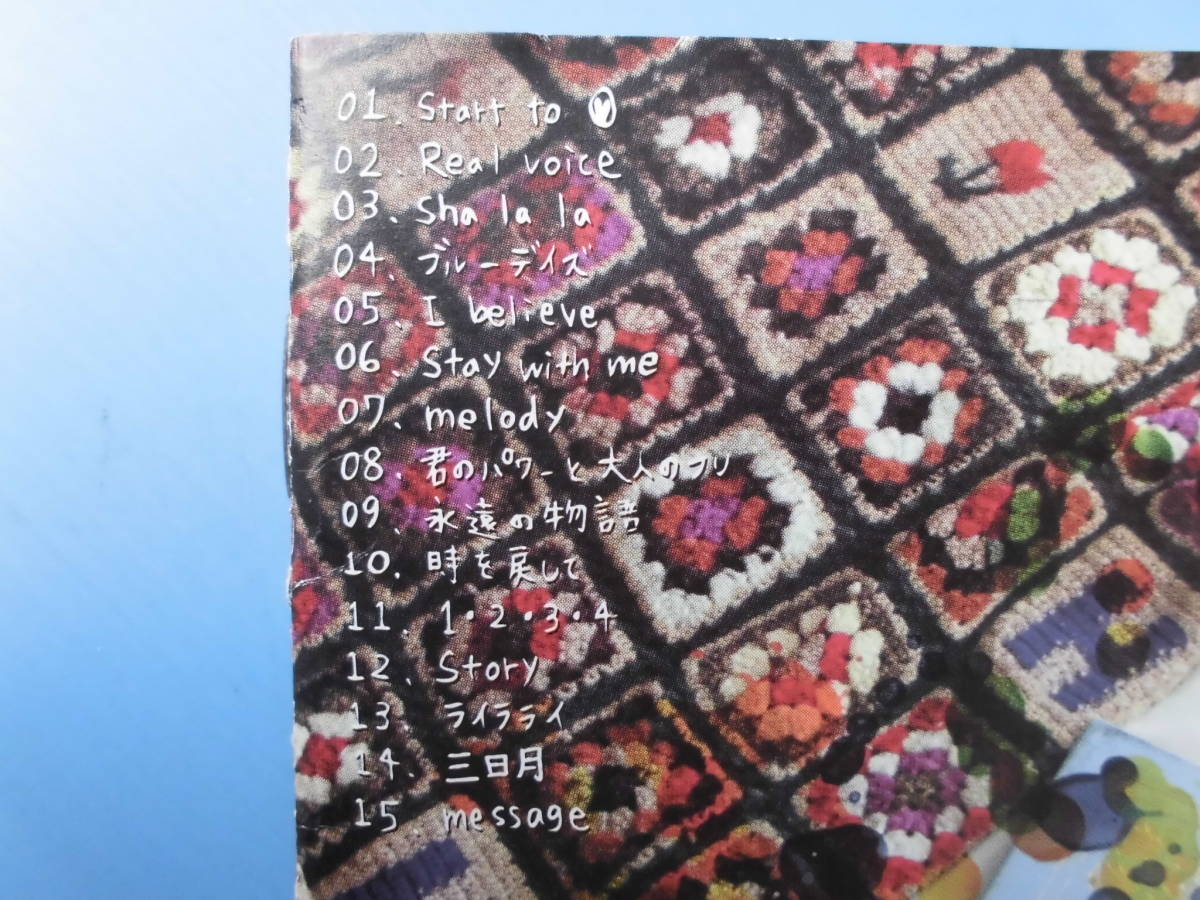 01. Start to ♥
02. Real voice
03. Sha la la
04. ブルーデイズ
05. I believe
06. Stay with me
07. melody
08. 君のパワーと大人のフリ
09. 永遠の物語
10. 時を戻して
11. 1・2・3・4
12. Story
13. ライラライ
14. 三日月
15. message